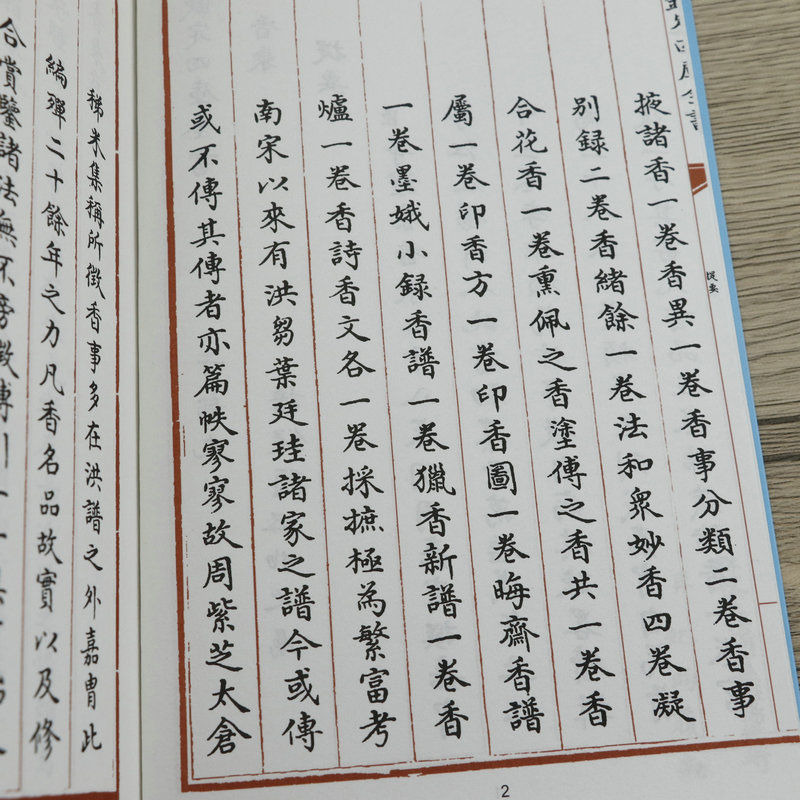 四庫全書
提要
掖諸香一卷香異一卷香事分類二卷香事
別録二卷香緒餘一卷法和衆妙香四卷凝
合花香一卷熏佩之香塗傅之香共一卷香
屬一卷印香方一卷印香圖一卷晦齋香譜
一卷墨娥小録香譜一卷獵香新譜一卷香
爐一卷香詩香文各一卷採摭極為繁富考
南宋以來有洪芻葉廷珪諸家之譜今或傳
或不傳其傳者亦篇帙寥寥故周紫芝太倉
2
稊米集稱所徵香事多在洪譜之外嘉胄此
編殫二十餘年之力凡香名品故實以及修
合賞鑒諸法無不旁徵博引一一具